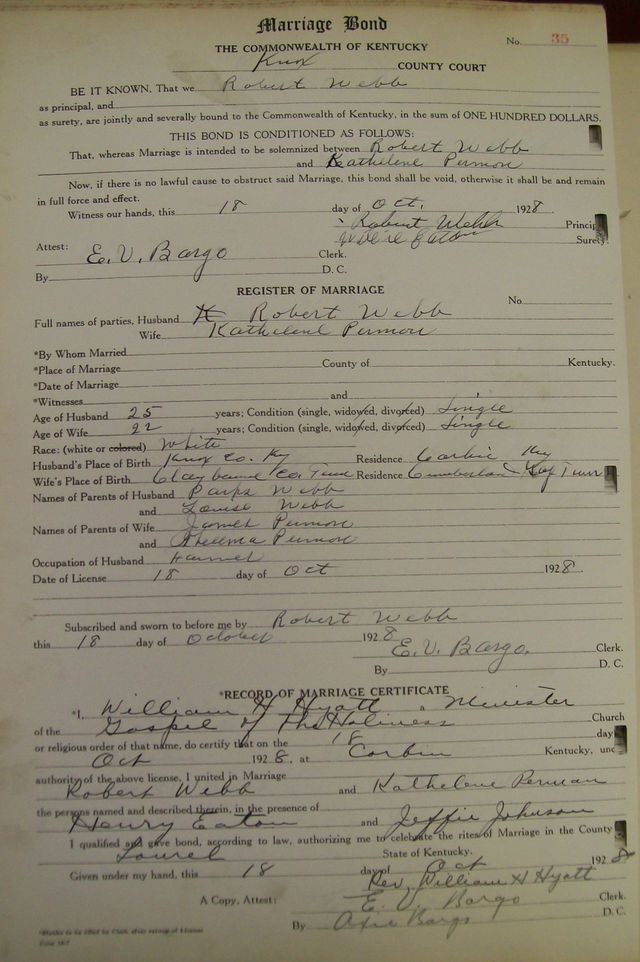 Marriage Bond
No. 35
THE COMMONWEALTH OF KENTUCKY
Knox COUNTY COURT
BE IT KNOWN, That we Robert Webb
as principal, and
as surety, are jointly and severally bound to the Commonwealth of Kentucky, in the sum of ONE HUNDRED DOLLARS.
THIS BOND IS CONDITIONED AS FOLLOWS:
That, whereas Marriage is intended to be solemnized between Robert Webb
and Kathelene Permon
Now, if there is no lawful cause to obstruct said Marriage, this bond shall be void, otherwise it shall be and remain
in full force and effect.
Witness our hands, this 18 day of Oct. 1928.
Robert Webb Princip
Surety
Attest: E. V. Bargo Clerk.
By D. C.
REGISTER OF MARRIAGE
No
Full names of parties, Husband Robert Webb
Wife Kathelene Permon
*By Whom Married
*Place of Marriage County of Kentucky.
*Date of Marriage
*Witnesses and
Age of Husband 25 years; Condition (single, widowed, divorced) Single
Age of Wife 22 years; Condition (single, widowed, divorced) Single
Race: (white or colored) White
Husband's Place of Birth Knox Co. Ky Residence Corbin Ky
Wife's Place of Birth Claybourne Co. Tenn Residence Cumberland Gap Tenn
Names of Parents of Husband Parks Webb
and Louise Webb
Names of Parents of Wife James Permon
and Thelema Permon
Occupation of Husband
Date of License 18 day of Oct 1928.
Subscribed and sworn to before me by Robert Webb
this 18 day of October 1928
E. V. Bargo. Clerk.
By D. C.
*RECORD OF MARRIAGE CERTIFICATE
*I, William H Hyatt a Minister
of the Gospel of The Holiness Church
or religious order of that name, do certify that on the 18 day
Oct 1928, at Corbin Kentucky, unc
authority of the above license, I united in Marriage
Robert Webb and Kathelene Perman
the persons named and described therein, in the presence of
Henry Eaton and Jeffie Johnson
I qualified and gave bond, according to law, authorizing me to celebrate the rites of Marriage in the County
Laurel State of Kentucky.
Given under my hand, this 18 day of Oct 1928
Rev, William H Hyatt
A Copy, Attest: E. V. Bargo Clerk
By Bargo D. C.